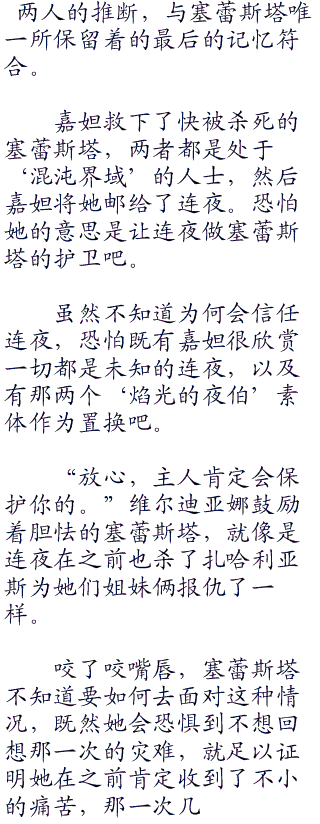 两人的推断，与塞蕾斯塔唯
一所保留着的最后的记忆符
合。
嘉妲救下了快被杀死的
塞蕾斯塔，两者都是处于
‘混沌界域’的人士，然后
嘉妲将她邮给了连夜。恐怕
她的意思是让连夜做塞蕾斯
塔的护卫吧。
虽然不知道为何会信任
连夜，恐怕既有嘉妲很欣赏
一切都是未知的连夜，以及
有那两个‘焰光的夜伯’素
体作为置换吧。
“放心，主人肯定会保
护你的。”维尔迪亚娜鼓励
着胆怯的塞蕾斯塔，就像是
连夜在之前也杀了扎哈利亚
斯为她们姐妹俩报仇了一
样。
咬了咬嘴唇，塞蕾斯塔
不知道要如何去面对这种情
况，既然她会恐惧到不想回
想那一次的灾难，就足以证
明她在之前肯定收到了不小
的痛苦，那一次几